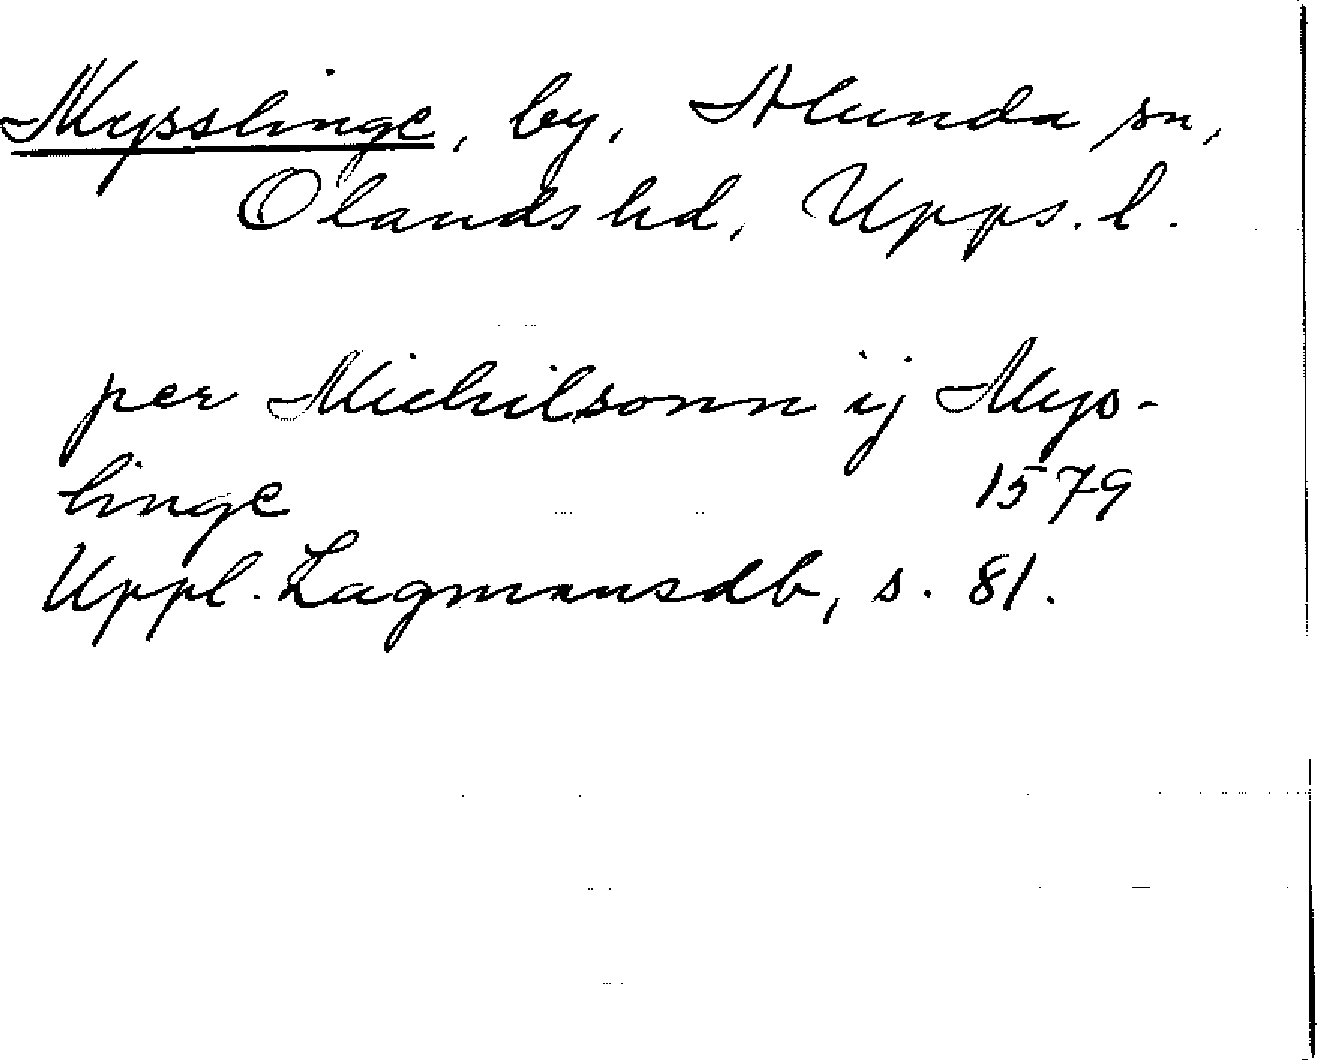 Mysslinge, by, Alunda sn,
Olands hd, Upps. l.
per Michilsonn ij Mys-
linge 1579
Uppl. Lagmansdb, s. 81.